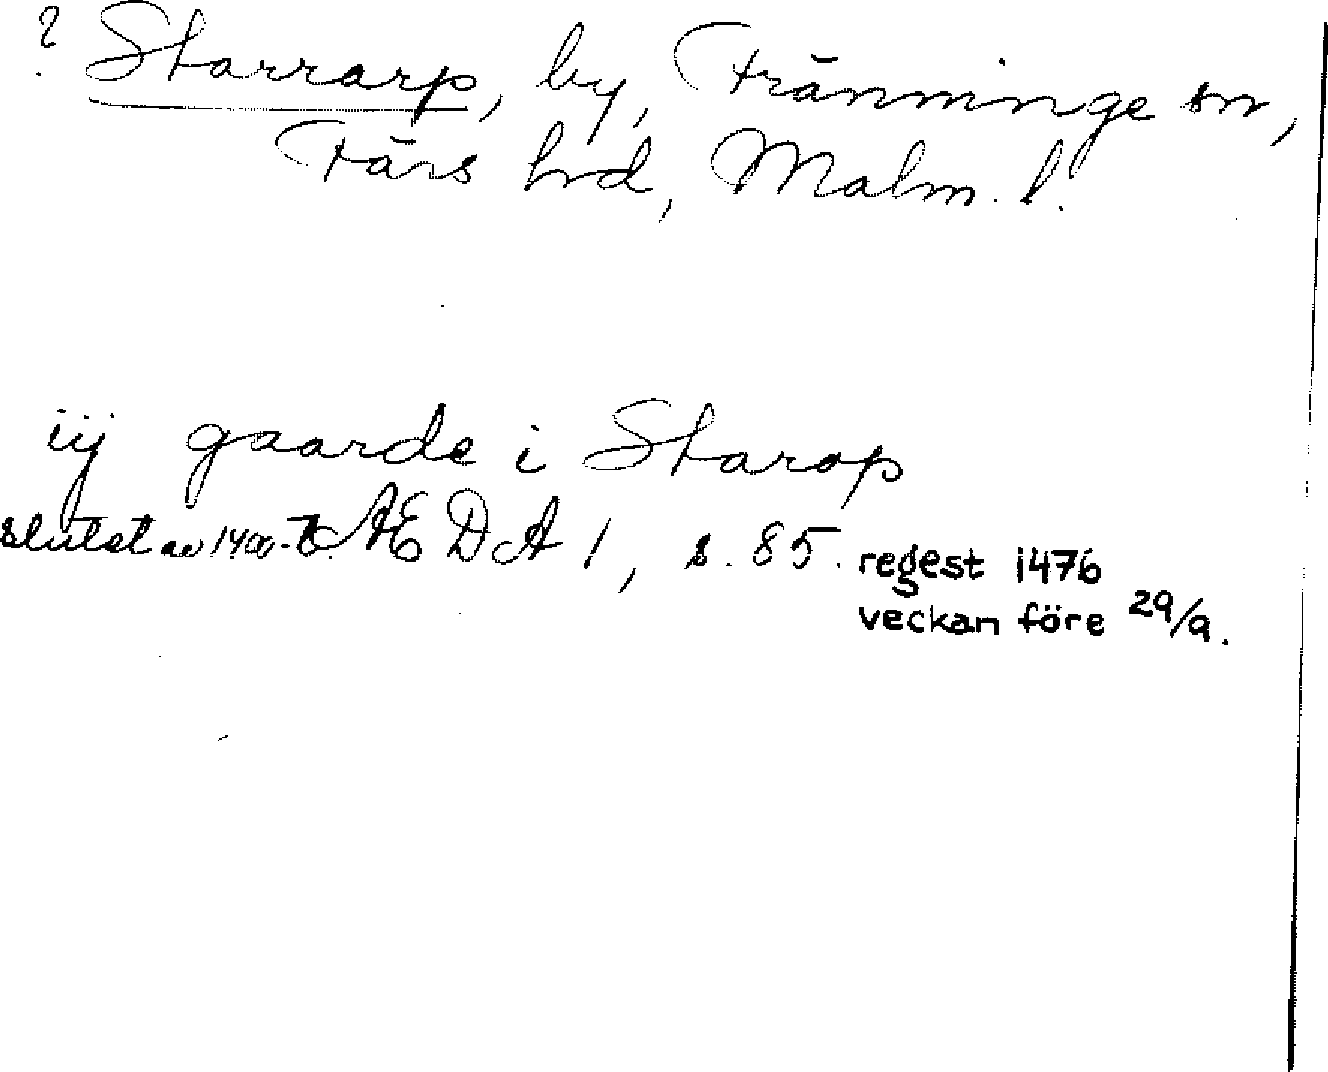 ? Starrarp, by, Tränninge sn,
Färs hrd, Malm. l.
iij gaarde i Starop
slutet av 1400-t. ÆDA 1, s. 85. regest 1476
veckan före 29/9.